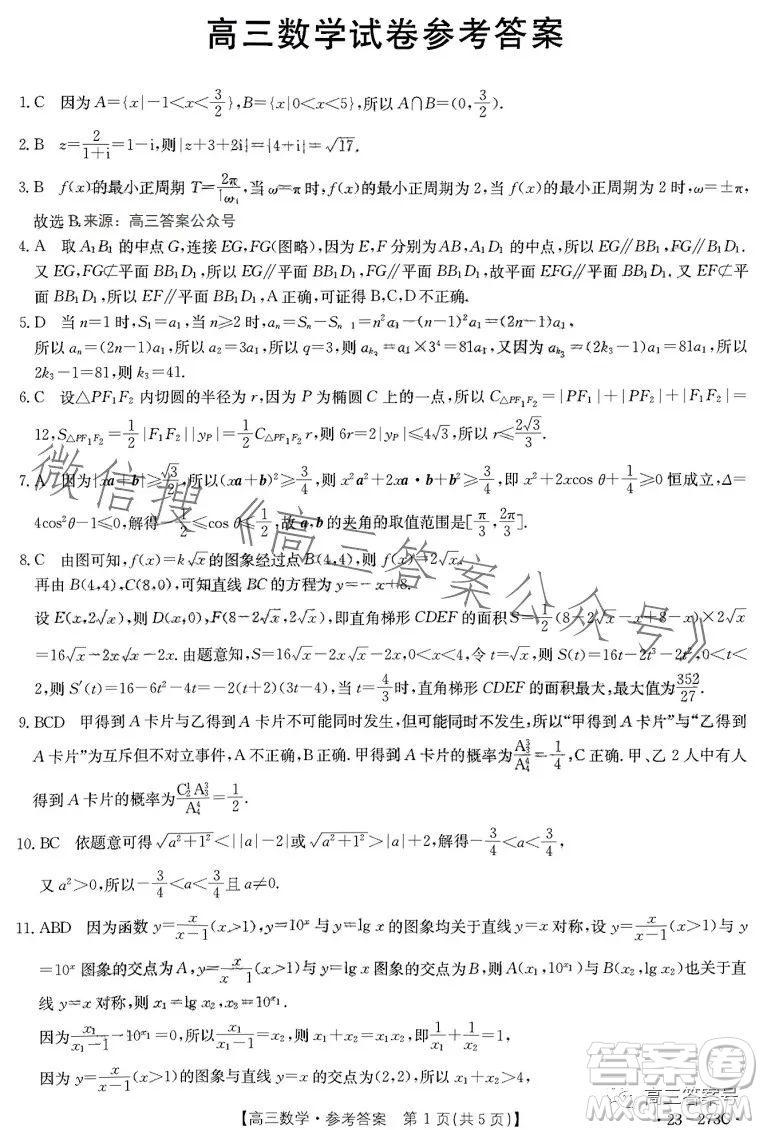 高三数学试卷参考答案
1. C 因为A={x|-1<x<3/2},B={x|0<x<5},所以A∩B=(0,3/2).
2. B z=2/(1+i)=1-i,则|z+3+2i|=|4+i|=√17.
3. B f(x)的最小正周期 T=2π/|ω|,当 ω=π时,f(x)的最小正周期为2;当f(x)的最小正周期为2时,ω=±π,
故选 B.来源:高三答案公众号
4. A 取A₁B₁的中点G,连接EG,FG(图略),因为E,F分别为AB,A₁D₁的中点,所以EG∥BB₁,FG∥B₁D₁.
又EG,FG⊄平面BB₁D₁,所以EG∥平面BB₁D₁,FG∥平面BB₁D₁,故平面EFG∥平面BB₁D₁.又EF⊄
平面BB₁D₁,所以EF∥平面BB₁D₁,A正确,可证得B,C,D不正确.
5. D 当n=1时,S₁=a₁,当n≥2时,aₙ=Sₙ-Sₙ₋₁=n²a₁-(n-1)²a₁=(2n-1)a₁,
所以aₙ=(2n-1)a₁,所以a₂=3a₁,所以q=3,所以a_{k₃}=a₁×3⁴=81a₁.又因为a_{k₃}=(2k₃-1)a₁=81a₁,所以
2k₃-1=81,则k₃=41.
6. C 设△PF₁F₂内切圆的半径为r,因为P为椭圆C上的一点,所以C_{△PF₁F₂}=|PF₁|+|PF₂|+|F₁F₂|=
12,S_{△PF₁F₂}=1/2|F₁F₂||y_P|=1/2C_{△PF₁F₂}r,则6r=2|y_P|≤4√3,所以r≤2√3/3.
7. A 因为|xa+b|≥√3/2,所以(xa+b)²≥3/4,则x²a²+2xa·b+b²≥3/4,即x²+2xcos θ+1/4≥0恒成立,Δ=
4cos²θ-1≤0,解得-1/2≤cos θ≤1/2,故a,b的夹角的取值范围是[π/3,2π/3].
8. C 由图可知,f(x)=k√x的图象经过点B(4,4),则f(x)=2√x.
再由B(4,4),C(8,0),可知直线BC的方程为y=-x+8.
设E(x,2√x),则D(x,0),F(8-2√x,2√x),即直角梯形CDEF的面积S=1/2(8-2√x-x+8-x)×2√x
=16√x-2x-2x√x.由题意知,S=16√x-2x-2x√x,0<x<4,令t=√x,则S(t)=16t-2t³-2t²,0<t<
2,则S′(t)=16-6t²-4t=-2(t+2)(3t-4),当t=4/3时,直角梯形CDEF的面积最大,最大值为352/27.
9. BCD 甲得到A卡片与乙得到A卡片不可能同时发生,但可能同时不发生,所以“甲得到A卡片”与“乙得到
A卡片”为互斥但不对立事件,A不正确,B正确.甲得到A卡片的概率为A₃³/A₄⁴=1/4,C正确.甲、乙2人中有人
得到A卡片的概率为C₂¹A₃³/A₄⁴=1/2.
10. BC 依题意可得√(a²+1²)<||a|-2|或√(a²+1²)>|a|+2,解得-3/4<a<3/4,
又a²>0,所以-3/4<a<3/4且a≠0.
11. ABD 因为函数y=x/(x-1)(x>1),y=10ˣ与y=lg x的图象均关于直线y=x对称,设y=x/(x-1)(x>1)与
y=10ˣ图象的交点为A,y=x/(x-1)(x>1)与y=lg x图象的交点为B,则A(x₁,10^{x₁})与B(x₂,lg x₂)也关于直
线y=x对称,则x₁=lg x₂,x₂=10^{x₁}.
因为x₁/(x₁-1)-10^{x₁}=0,所以x₁/(x₁-1)=x₂,则x₁+x₂=x₁x₂,即1/x₁+1/x₂=1,
因为y=x/(x-1)(x>1)的图象与直线y=x的交点为(2,2),所以x₁+x₂>4,
【高三数学·参考答案 第1页(共5页)】
·23-273C·
微信搜《高三答案公众号》
答案卷
高三答案号